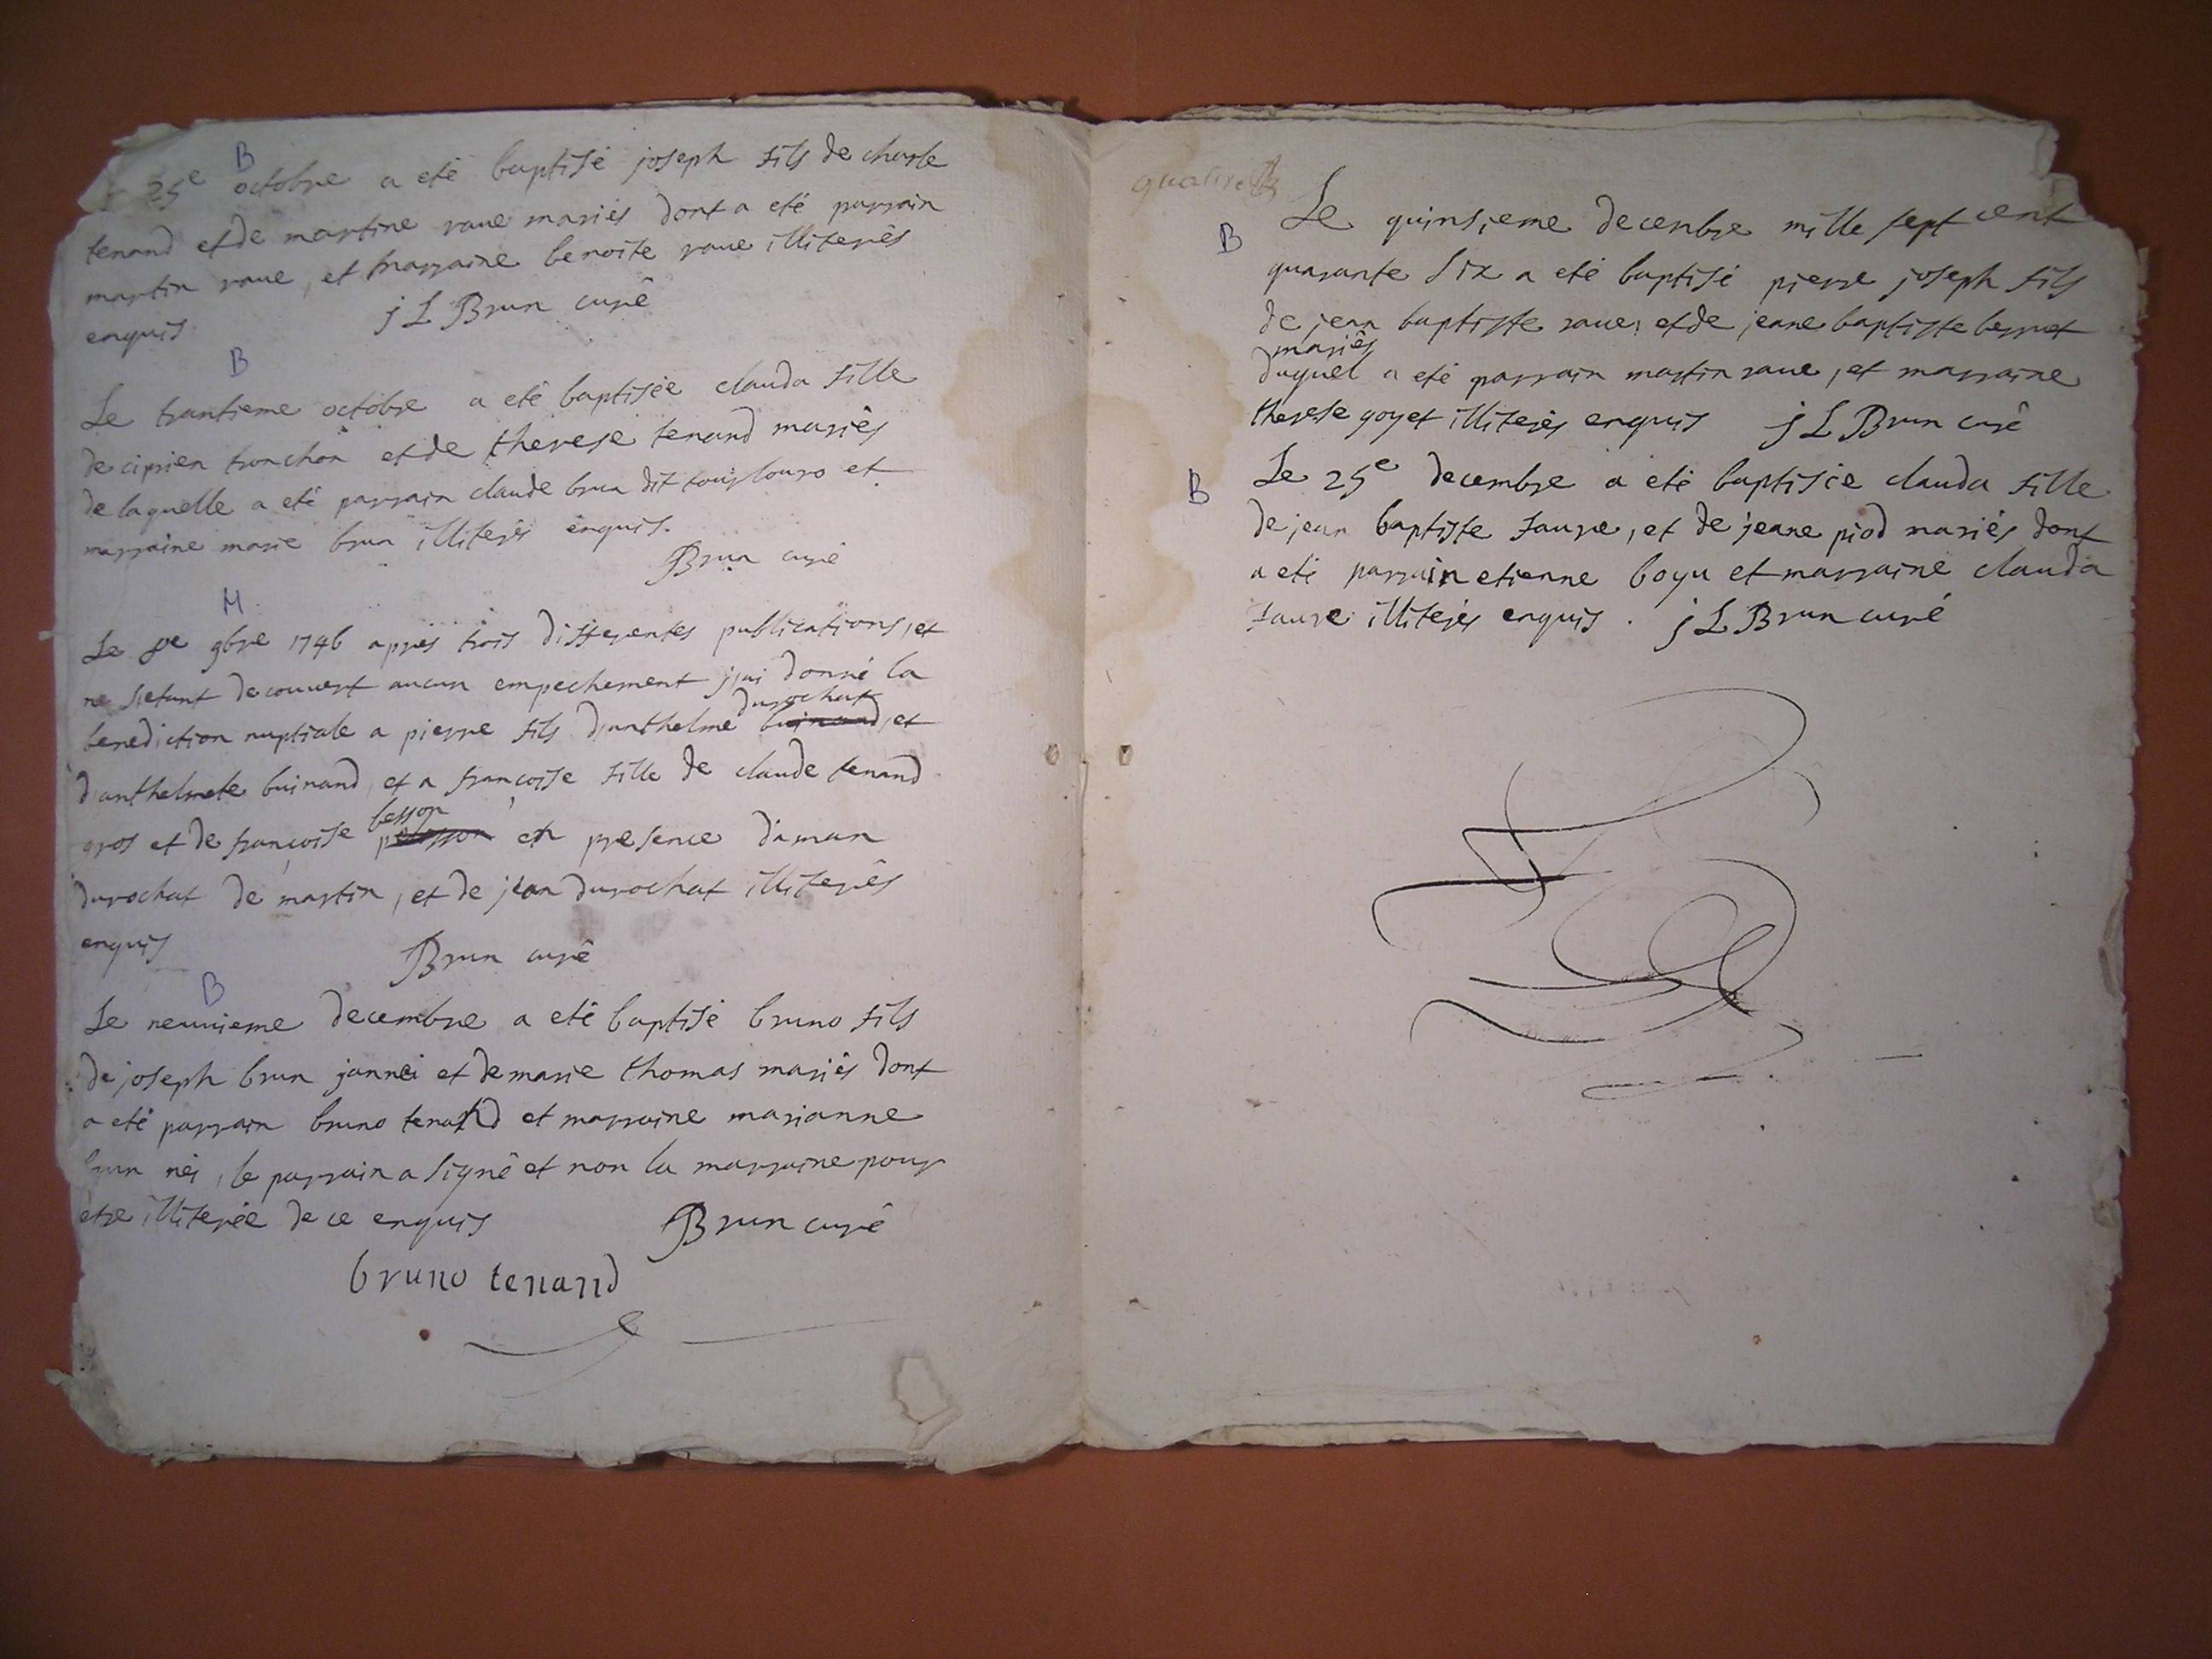 B
25e octobre a eté baptisé joseph fils de charle
tenand et de martine raue mariés dont a eté parrain
martin raue, et marraine benoite raue illiterés
enquis j L Brun curé
B
Le trantieme octobre a eté baptisée clauda fille
de ciprien tronchon et de therese tenand mariés
de laquelle a eté parrain claude brun dit tourlouro et
marraine marie brun illiterés enquis.
Brun curé
M
Le 8e 9bre 1746 apres trois differentes publications, et
ne s'etant decouvert aucun empechement j'ai donné la
durochat
benediction nuptiale a pierre fils d'anthelme buinand, et
d'anthelmete buinand, et a francoise fille de claude tenand
besson
gros et de francoise en presence d'aman
durochat de martin, et de jean durochat illiterés
enquis Brun curé
B
Le neuvieme decembre a eté baptisé bruno fils
de joseph brun jannei et de marie thomas mariés dont
a eté parrain bruno tenand et marraine marianne
brun nei, le parrain a signé et non la marraine pour
etre illiterée de ce enquis Brun curé
bruno tenand
B Le quinsieme decenbre mille sept cent
quarante six a eté baptisé pierre joseph fils
de jean baptiste raue, et de jeane baptiste berret
mariés
duquel a eté parrain martin raue, et marraine
therese goyet illiterés enquis j L Brun curé
B Le 25e decembre a eté baptisée clauda fille
de jean baptiste faure, et de jeane piod mariés dont
a eté parrain etienne boyu et marraine clauda
faure illiterés enquis. j L Brun curé